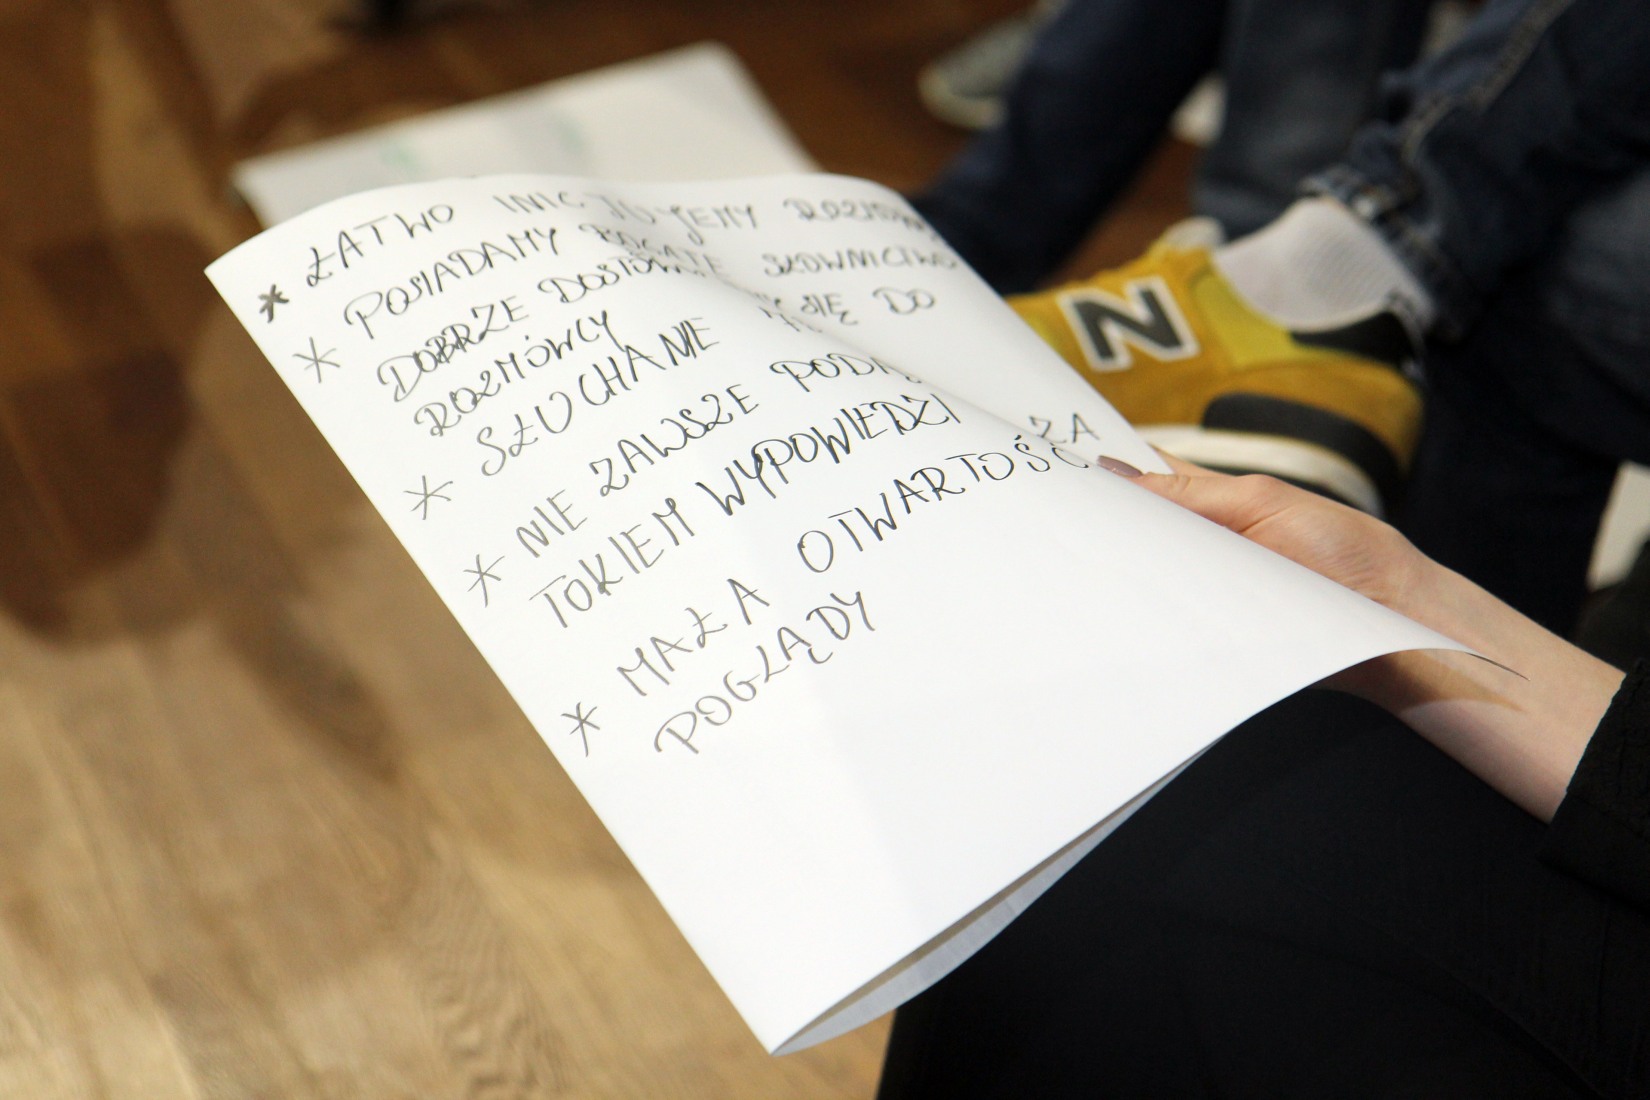 * ŁATWO INICJUJEMY
* POSIADAMY BOGATE SŁOWNICTWO
DOBRZE SIĘ DO
ROZMÓWCY
* SŁUCHANIE
* NIE ZAWSZE ZA
TOKIEM WYPOWIEDZI
* MAŁA OTWARTOŚĆ
POGLĄDY
N